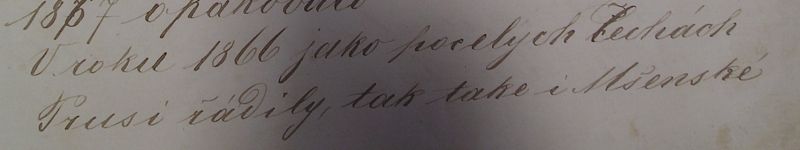 1867 opakovalo
V roku 1866 jako pocelých Čechách
Prusi řádily, tak take i Mšenské